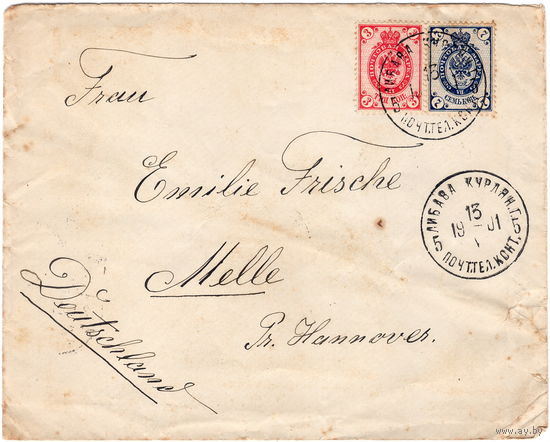 3 3
7 7
ПОЧТОВАЯ МАРКА
ПОЧТОВАЯ МАРКА
3 ТРИ КОП. 3
7 СЕМЬ КОП. 7
ЛИБАВА
5 ПОЧТ.ТЕЛ.КОНТ.
Frau
Emilie Frische
ЛИБАВА КУРЛЯН.Г.
13
19 – 01
V
5 ПОЧТ.ТЕЛ.КОНТ. 5
Melle
Pr. Hannover.
Deutschland
www.ay.by